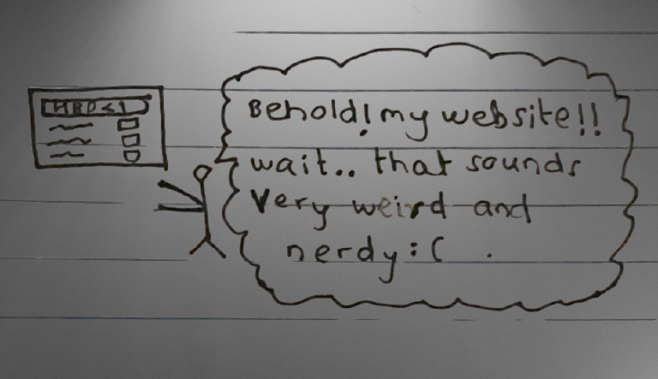 Behold! my website!!
wait.. that sounds
very weird and
nerdy :(